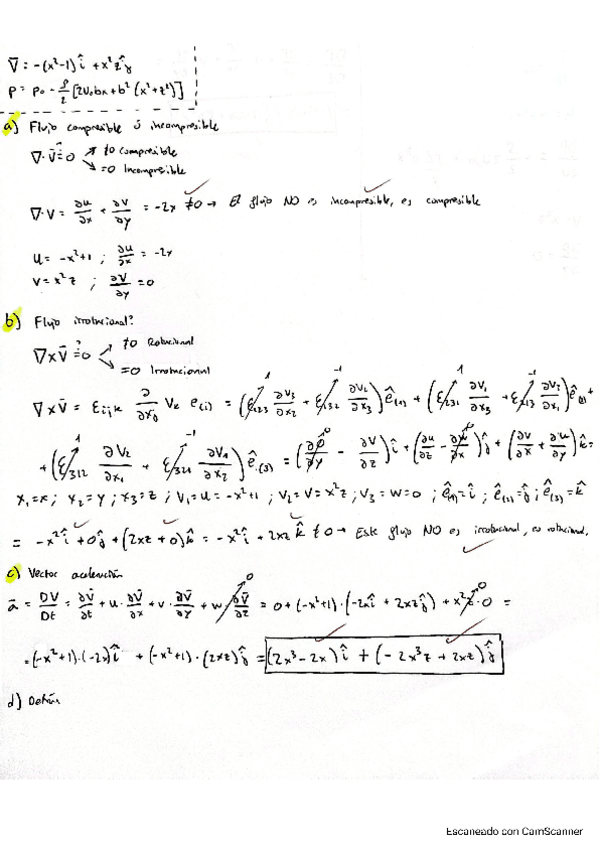 V̄ = -(x²-1)î + x²zĵ
P = P₀ - ρ/2 [2U₀bx + b²(x²+z²)]
a) Flujo compresible ó incompresible
∇·V̄ ?= 0 → ≠0 Compresible
→ =0 Incompresible
∇·V = ∂u/∂x + ∂v/∂y = -2x ≠ 0 → El flujo NO es incompresible, es compresible
u = -x²+1 ; ∂u/∂x = -2x
v = x²z ; ∂v/∂y = 0
b) Flujo irrotacional?
∇×V̄ ?= 0 → ≠0 Rotacional
→ =0 Irrotacional
∇×V̄ = ε_ijk ∂/∂x_j V_k e_(i) = (ε₁₂₃ ∂V₃/∂x₂ + ε₁₃₂ ∂V₂/∂x₃) ê₍₁₎ + (ε₂₃₁ ∂V₁/∂x₃ + ε₂₁₃ ∂V₃/∂x₁) ê₍₂₎ +
+ (ε₃₁₂ ∂V₂/∂x₁ + ε₃₂₁ ∂V₁/∂x₂) ê₍₃₎ = (∂w/∂y - ∂v/∂z) î + (∂u/∂z - ∂w/∂x) ĵ + (∂v/∂x + ∂u/∂y) k̂ =
x₁=x ; x₂=y ; x₃=z ; V₁=u=-x²+1 ; V₂=v=x²z ; V₃=w=0 ; ê₍₁₎=î ; ê₍₂₎=ĵ ; ê₍₃₎=k̂
= -x²î + 0ĵ + (2xz+0)k̂ = -x²î + 2xz k̂ ≠ 0 → Este flujo NO es irrotacional, es rotacional.
c) Vector aceleración
ā = DV/Dt = ∂V̄/∂t + u·∂V̄/∂x + v·∂V̄/∂y + w·∂V̄/∂z = 0 + (-x²+1)·(-2xî + 2xzĵ) + x²z·0 =
= (-x²+1)·(-2x)î + (-x²+1)·(2xz)ĵ = (2x³-2x)î + (-2x³z+2xz)ĵ
d)
Escaneado con CamScanner